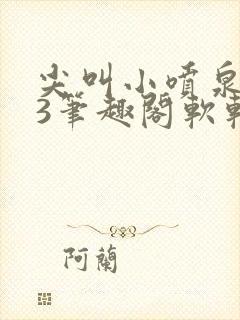 尖叫小噴泉
3筆趣閣軟
阿蘭